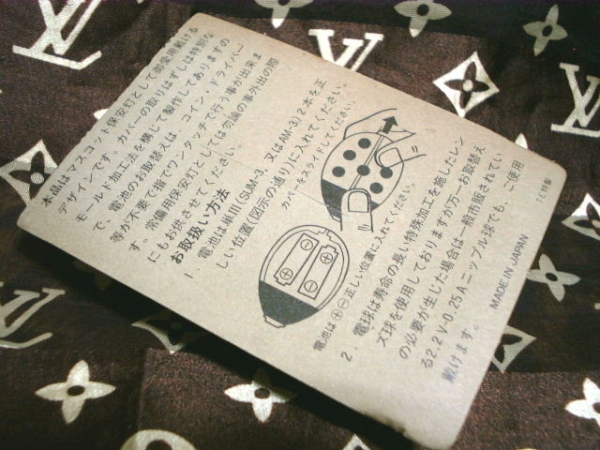 本品はマスコット保安灯として御愛用戴ける
デザインです。カバーの取りはずしは特別な
モールド加工法を構じて製作してありますの
で、電池のお取替えは、コイン・ドライバー
等が不要で指でワンタッチで行う事が出来ま
す。常備用保安灯としては勿論の事外出の際
にもお供させてください。
お取扱い方法
1. 電池は単III(SUM-3, 又はAM-3)2本を正
しい位置(図示の通り)に入れてください。
カバーをスライドしてください。
電池は⊕⊖正しい位置に入れてください。
2. 電球は寿命の長い特殊加工を施したレン
ズ球を使用しておりますが万一お取替え
の必要が生じた場合は一般市販されてい
る2.2V-0.25Aニップル球でも、ご使用
戴けます。
MADE IN JAPAN
LV